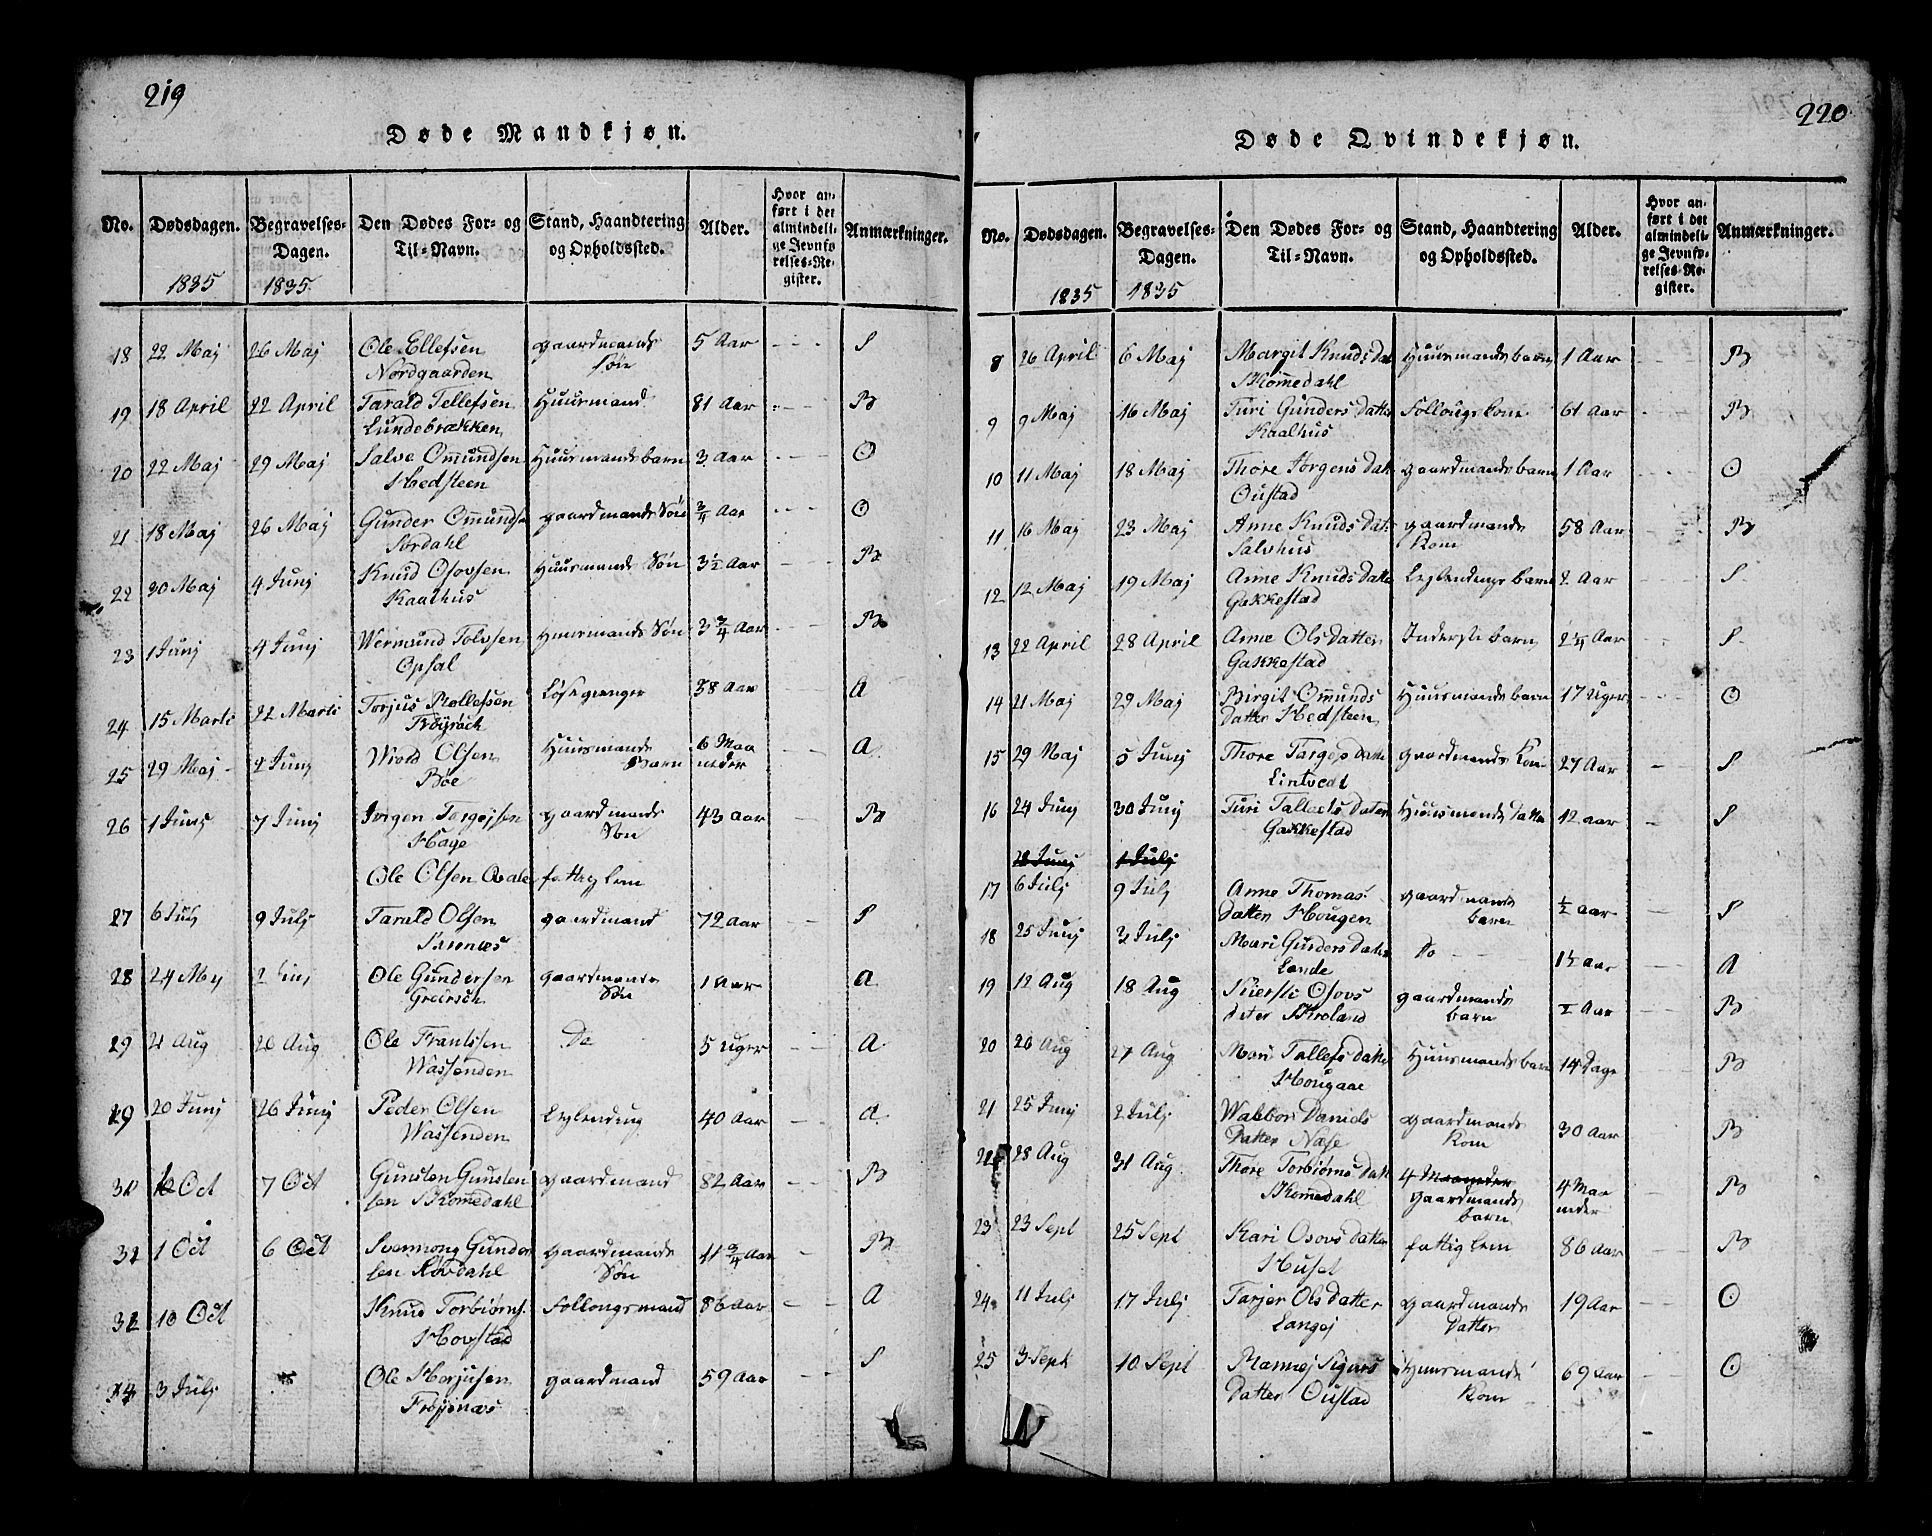 219
Døde Mandkjøn.
No. Dødsdagen. Begravelses-Dagen. Den Dødes For- og Til-Navn. Stand, Haandtering og Opholdssted. Alder. Hvor anført i det almindelige Jevnførelses-Register. Anmærkninger.
1835 1835
18 22 Maj 26 Maj Ole Ellefsen gaardmands 5 Aar S
Nordgaarden Søn
19 18 April 22 April Tarald Tellefsen Huusmand 81 Aar B
Lundebrækken
20 22 Maj 29 Maj Salve Omundsen Huusmands barn 3 Aar O
Hedsteen
21 18 Maj 26 Maj Gunder Omunds gaardmands Søn 3/4 Aar O
Sordahl
22 30 Maj 4 Junj Knud Osovsen Huusmands Søn 3½ Aar B
Kaalhus
23 1 Junj 4 Junj Wermund Tolvsen Huusmands Søn 3 3/4 Aar B
Opsal
24 15 Marti 22 Marti Torjus Rollefsen Løsgienger 38 Aar A
25 29 Maj 2 Junj Olsen Huusmands 6 Maa A
Bøe Barn neder
26 1 Junj 7 Junj Jørgen Torgejsen gaardmands 43 Aar B
Hage Søn
Ole Olsen fattig lem
27 6 Julj 9 Julj Tarald Olsen gaardmand 72 Aar S
28 24 Maj 2 Junj Ole Gundersen gaardmands 1 Aar A
Søn
29 21 Aug 26 Aug Ole Frantssen Do 5 Uger A
Wassenden
29 20 Junj 26 Junj Peder Olsen Leylending 40 Aar A
Wassenden
31 Oct 7 Oct Gunsten Gunsten gaardmand 82 Aar B
sen Skomedahl
32 1 Oct 6 Oct Svennong Gunder gaardmands 11 3/4 Aar B
sen Røvdahl Søn
32 10 Oct Knud Torbiørns. Follougsmand 86 Aar A
Hovstad
34 3 Julj Ole Herjusen gaardmand 59 Aar S
Frøjenæs
220
Døde Qvindekjøn.
No. Dødsdagen. Begravelses-Dagen. Den Dødes For- og Til-Navn. Stand, Haandtering og Opholdssted. Alder. Hvor anført i det almindelige Jevnførelses-Register. Anmærkninger.
1835 1835
8 26 April 6 Maj Margit Knuds Dat Huusmands barn 1 Aar B
Skomedahl
9 9 Maj 16 Maj Turi Gunders Datter Follougs kone 61 Aar B
Kaalhus
10 11 Maj 18 Maj Thore Jørgens Dat gaardmands barn 1 Aar O
Oustad
11 16 Maj 23 Maj Anne Knuds Dat gaardmands 58 Aar B
Salvhus Kom
12 12 Maj 19 Maj Anne Knuds Datter Leylendings barn 2 Aar S
Gakkestad
13 22 April 28 April Anne Olsdatter Inderste barn 2¼ Aar S
Gakkestad
14 21 Maj 29 Maj Birgit Omunds Huusmands barn 17 Uger O
Datter Hedsteen
15 29 Maj 5 Junj Thore Targejs Datter gaardmands Kone 27 Aar S
Lintvedt
16 24 Junj 30 Junj Turi Tallefs Datter Huusmands Datter 12 aar S
Gakkestad
28 Junj 1 Julj
17 6 Julj 9 Julj Anne Thomas gaardmands ½ aar S
Datter Hougen barn
18 25 Junj 2 Julj Mari Gunders Datter Do 1½ aar A
Lande
19 12 Aug 18 Aug Kiersti Osovs gaardmands ½ Aar B
dater Skroland barn
20 20 Aug 27 Aug Mari Tallefs Datter Huusmands barn 14 Dage B
Hougaae
21 25 Junj 2 Julj Wabbor Daniels gaardmands 30 Aar B
Datter Næse Kom
22 28 Aug 31 Aug Thore Torbiørns Dat 4 Maaneder 4 Maa B
Skomedahl gaardmands neder
barn
23 23 Sept 25 Sept Kari Osovs datter fattig lem 86 Aar B
Huset
24 11 Julj 17 Julj Tarjer Olsdatter gaardmands 19 Aar O
Langej Datter
25 3 Sept 10 Sept Rannej Sigurs Huusmands 69 Aar O
Datter Oustad Kom